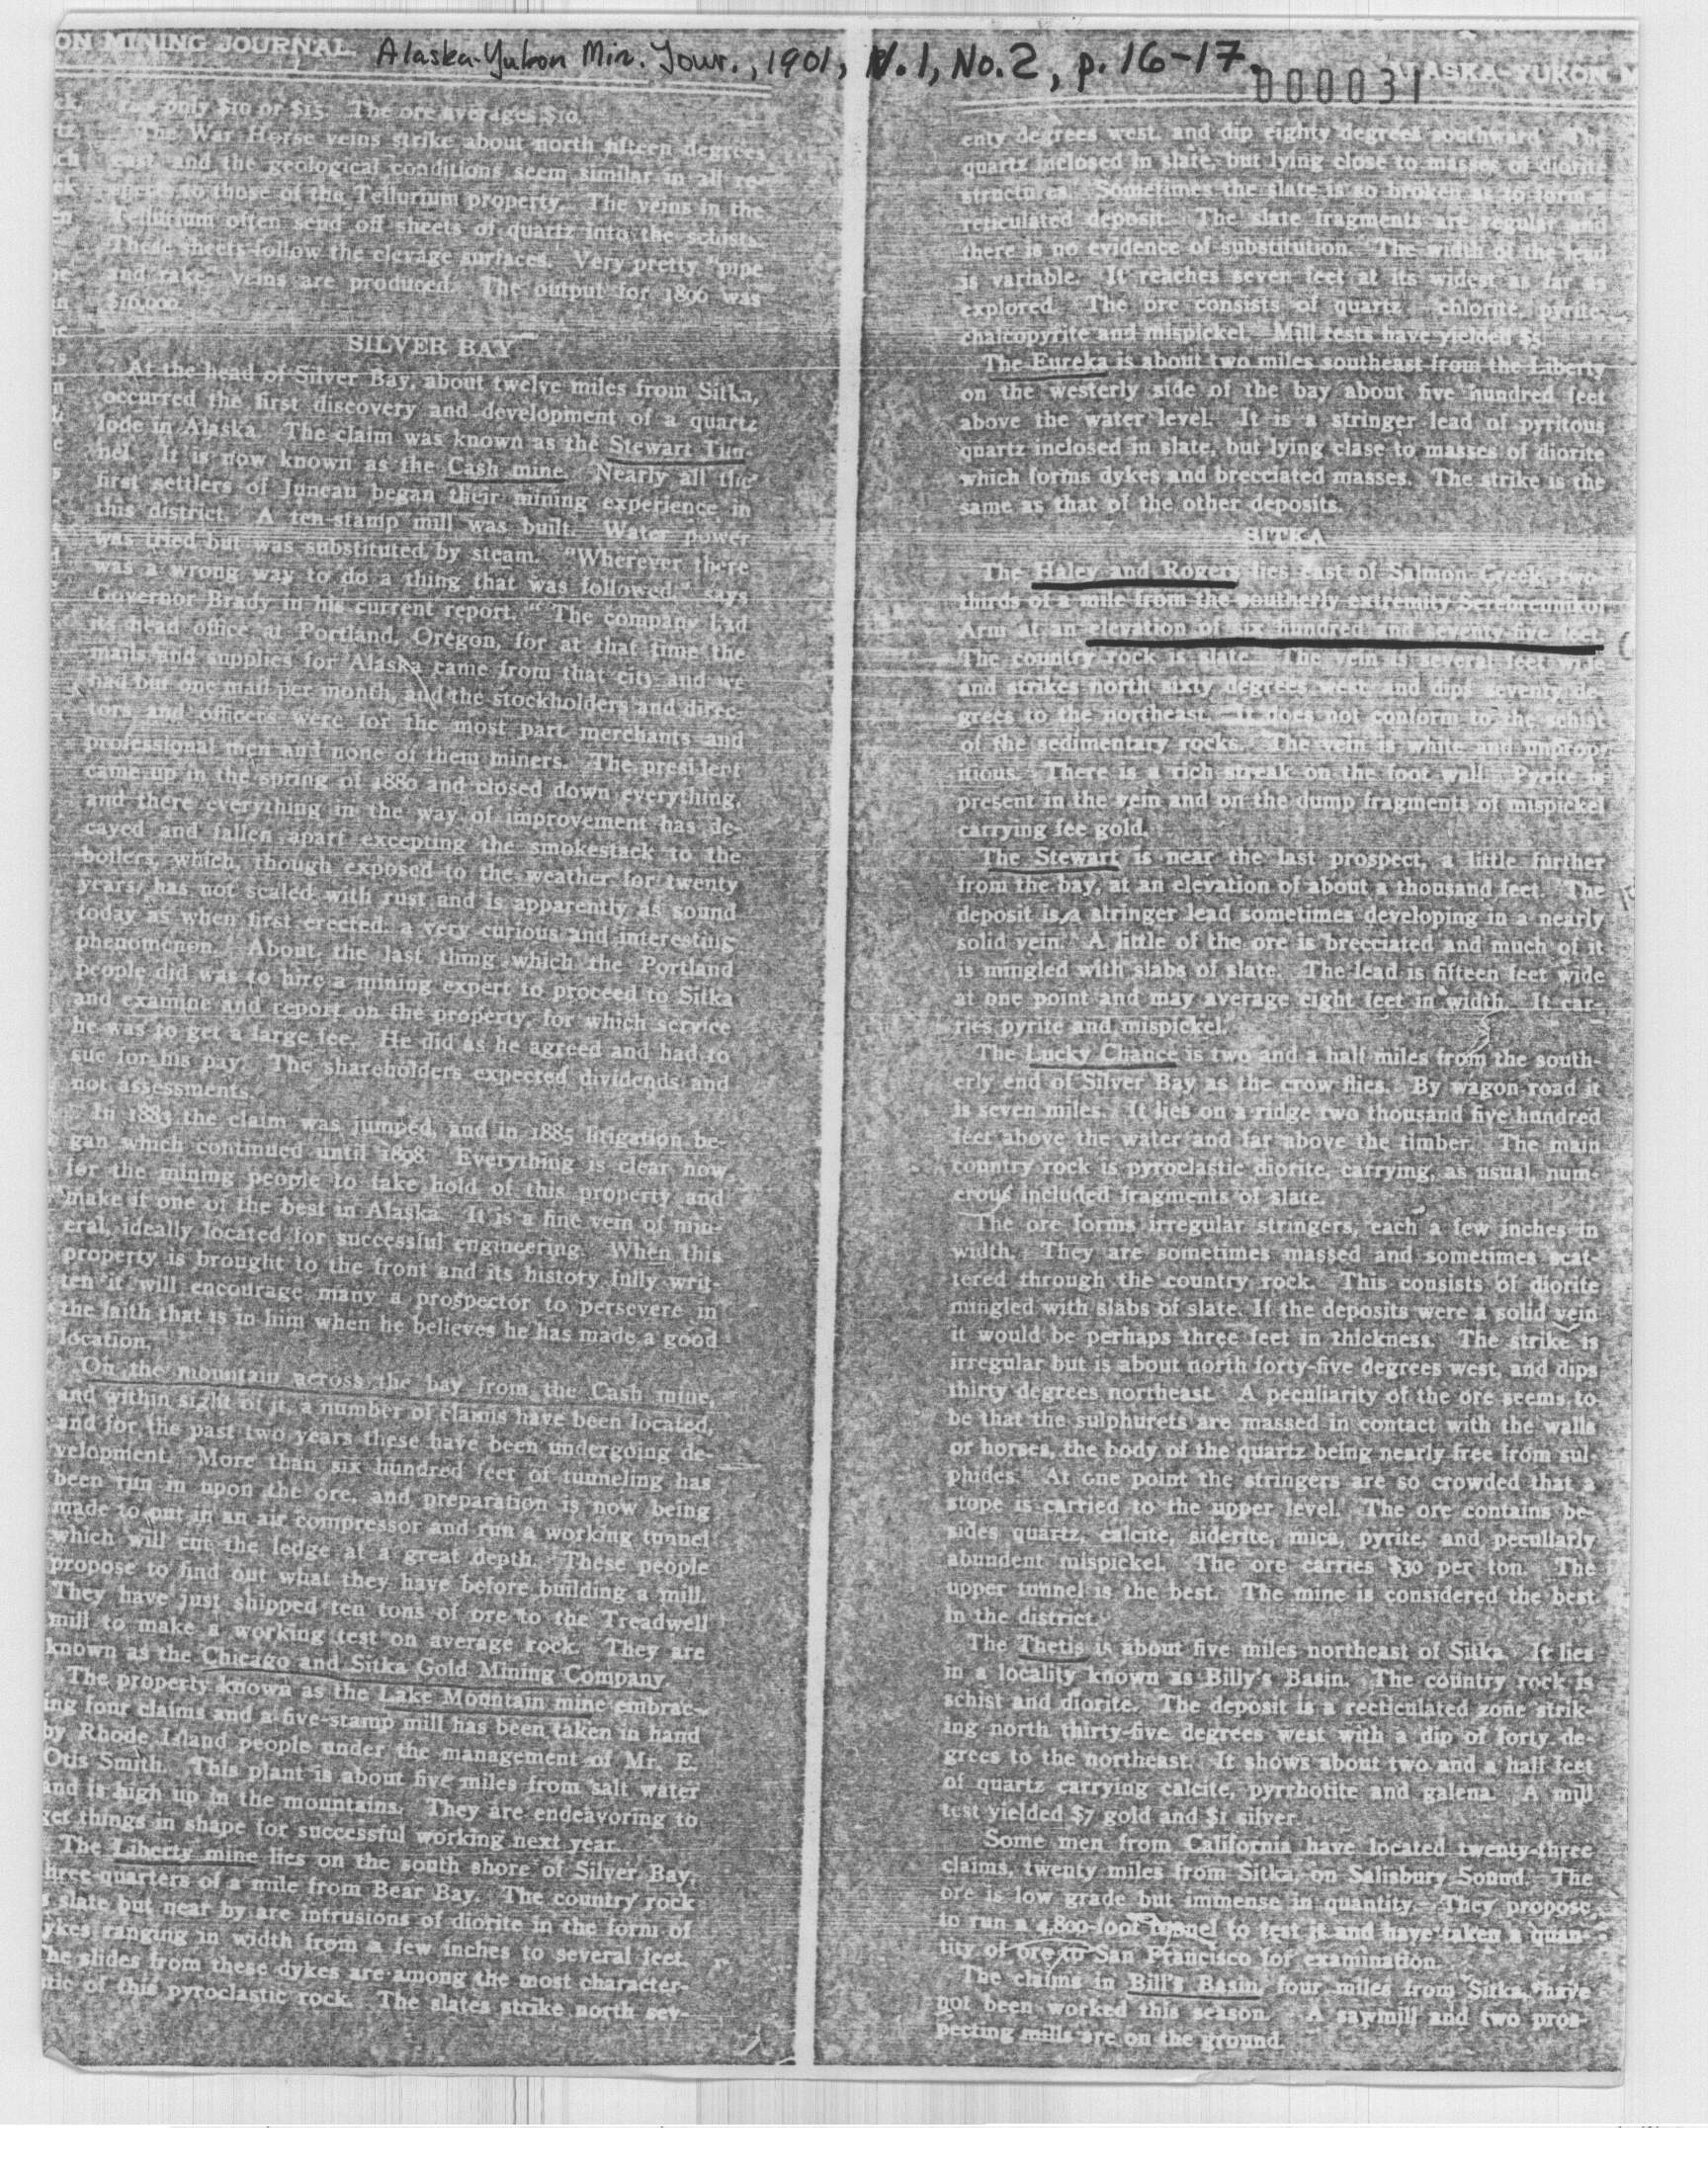 ON MINING JOURNAL.
Alaska-Yukon Min. Jour., 1901, V.1, No.2, p. 16-17.
000031
ALASKA-YUKON M
only $10 or $15. The ore averages $10.
The War Horse veins strike about north fifteen degrees
east and the geological conditions seem similar in all re-
to those of the Tellurium property. The veins in the
Tellurium often send off sheets of quartz into the schists.
These sheets follow the clevage surfaces. Very pretty "pipe
and rake" veins are produced. The output for 1896 was
$16,000.
SILVER BAY
At the head of Silver Bay, about twelve miles from Sitka,
occurred the first discovery and development of a quartz
lode in Alaska. The claim was known as the Stewart Tun-
nel. It is now known as the Cash mine. Nearly all the
first settlers of Juneau began their mining experience in
this district. A ten-stamp mill was built. Water power
was tried but was substituted by steam. "Wherever there
was a wrong way to do a thing that was followed," says
Governor Brady in his current report. "The company had
its head office at Portland, Oregon, for at that time the
mails and supplies for Alaska came from that city and we
had but one mail per month, and the stockholders and direc-
tors and officers were for the most part merchants and
professional men and none of them miners. The president
came up in the spring of 1880 and closed down everything,
and there everything in the way of improvement has de-
cayed and fallen apart excepting the smokestack to the
boilers, which, though exposed to the weather for twenty
years, has not scaled with rust and is apparently as sound
today as when first erected, a very curious and interesting
phenomenon. About the last thing which the Portland
people did was to hire a mining expert to proceed to Sitka
and examine and report on the property, for which service
he was to get a large fee. He did as he agreed and had to
sue for his pay. The shareholders expected dividends and
not assessments.
In 1883 the claim was jumped, and in 1885 litigation be-
gan which continued until 1898. Everything is clear now
for the mining people to take hold of this property and
make it one of the best in Alaska. It is a fine vein of min-
eral, ideally located for successful engineering. When this
property is brought to the front and its history fully writ-
ten it will encourage many a prospector to persevere in
the faith that is in him when he believes he has made a good
location.
On the mountain across the bay from the Cash mine,
and within sight of it, a number of claims have been located,
and for the past two years these have been undergoing de-
velopment. More than six hundred feet of tunneling has
been run in upon the ore, and preparation is now being
made to put in an air compressor and run a working tunnel
which will cut the ledge at a great depth. These people
propose to find out what they have before building a mill.
They have just shipped ten tons of ore to the Treadwell
mill to make a working test on average rock. They are
known as the Chicago and Sitka Gold Mining Company.
The property known as the Lake Mountain mine embrac-
ing four claims and a five-stamp mill has been taken in hand
by Rhode Island people under the management of Mr. E.
Otis Smith. This plant is about five miles from salt water
and is high up in the mountains. They are endeavoring to
get things in shape for successful working next year.
The Liberty mine lies on the south shore of Silver Bay,
three-quarters of a mile from Bear Bay. The country rock
slate but near by are intrusions of diorite in the form of
ykes ranging in width from a few inches to several feet.
The slides from these dykes are among the most character-
stic of this pyroclastic rock. The slates strike north sev-
enty degrees west, and dip eighty degrees southward. The
quartz inclosed in slate, but lying close to masses of diorite
structures. Sometimes the slate is so broken as to form a
reticulated deposit. The slate fragments are regular and
there is no evidence of substitution. The width of the lead
is variable. It reaches seven feet at its widest as far as
explored. The ore consists of quartz, chlorite, pyrite,
chalcopyrite and mispickel. Mill tests have yielded $5.
The Eureka is about two miles southeast from the Liberty
on the westerly side of the bay about five hundred feet
above the water level. It is a stringer lead of pyritous
quartz inclosed in slate, but lying clase to masses of diorite
which forms dykes and brecciated masses. The strike is the
same as that of the other deposits.
SITKA
The Haley and Rogers lies east of Salmon Creek, two-
thirds of a mile from the southerly extremity Serebrennikof
Arm at an elevation of six hundred and seventy-five feet.
The country rock is slate. The vein is several feet wide
and strikes north sixty degrees west and dips seventy de-
grees to the northeast. It does not conform to the schist
of the sedimentary rocks. The vein is white and
There is a rich streak on the foot wall. Pyrite is
present in the vein and on the dump fragments of mispickel
carrying fee gold.
The Stewart is near the last prospect, a little further
from the bay, at an elevation of about a thousand feet. The
deposit is a stringer lead sometimes developing in a nearly
solid vein. A little of the ore is brecciated and much of it
is mingled with slabs of slate. The lead is fifteen feet wide
at one point and may average eight feet in width. It car-
ries pyrite and mispickel.
The Lucky Chance is two and a half miles from the south-
erly end of Silver Bay as the crow flies. By wagon road it
is seven miles. It lies on a ridge two thousand five hundred
feet above the water and far above the timber. The main
country rock is pyroclastic diorite, carrying, as usual, num-
erous included fragments of slate.
The ore forms irregular stringers, each a few inches in
width. They are sometimes massed and sometimes scat-
tered through the country rock. This consists of diorite
mingled with slabs of slate. If the deposits were a solid vein
it would be perhaps three feet in thickness. The strike is
irregular but is about north forty-five degrees west, and dips
thirty degrees northeast. A peculiarity of the ore seems to
be that the sulphurets are massed in contact with the walls
or horses, the body of the quartz being nearly free from sul-
phides. At one point the stringers are so crowded that a
stope is carried to the upper level. The ore contains be-
sides quartz, calcite, siderite, mica, pyrite, and pecullarly
abundent mispickel. The ore carries $30 per ton. The
upper tunnel is the best. The mine is considered the best
in the district.
The Thetis is about five miles northeast of Sitka. It lies
in a locality known as Billy's Basin. The country rock is
schist and diorite. The deposit is a recticulated zone strik-
ing north thirty-five degrees west with a dip of forty de-
grees to the northeast. It shows about two and a half feet
of quartz carrying calcite, pyrrhotite and galena. A mill
test yielded $7 gold and $1 silver.
Some men from California have located twenty-three
claims, twenty miles from Sitka, on Salisbury Sound. The
ore is low grade but immense in quantity. They propose
to run a 4,800-foot tunnel to test it and have taken a quan-
tity of ore to San Francisco for examination.
The claims in Bill's Basin, four miles from Sitka, have
not been worked this season. A sawmill and two pros-
pecting mills are on the ground.